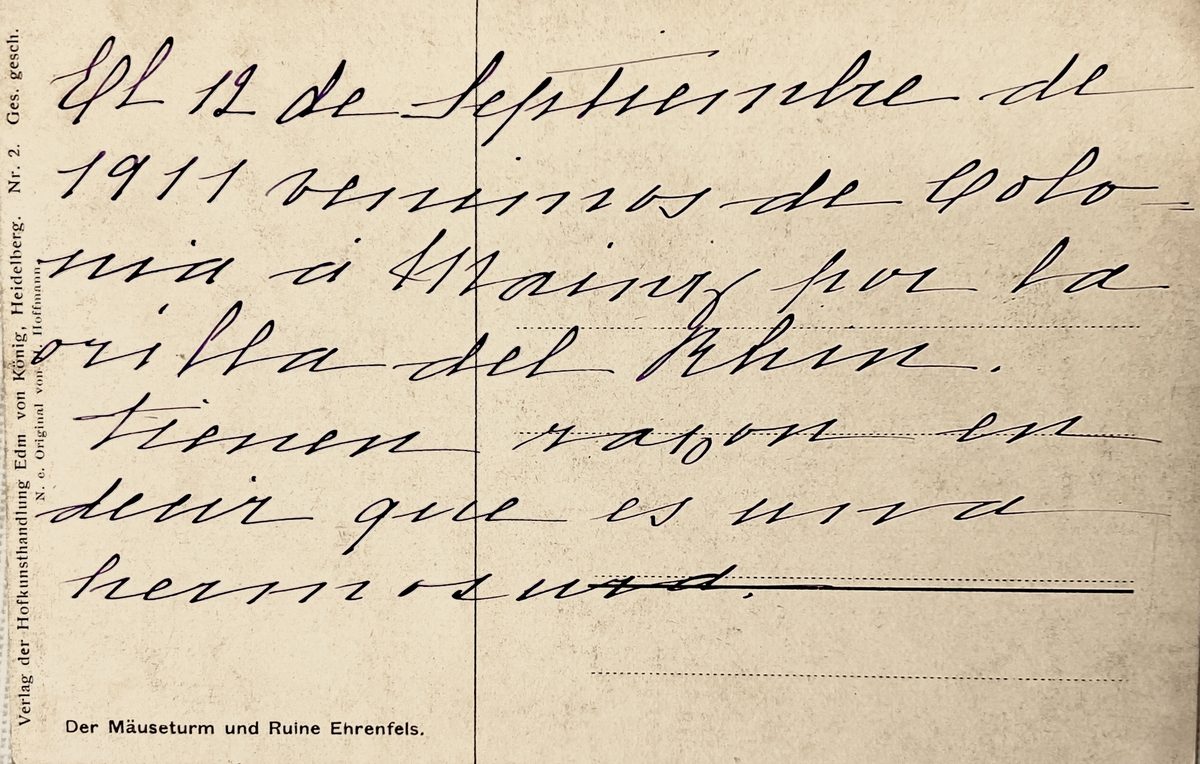 El 12 de Septiembre de
1911 venimos de Colo-
nia á Mainz por la
orilla del Rhin.
tienen razon en
decir que es una
hermosura.
Der Mäuseturm und Ruine Ehrenfels.
Verlag der Hofkunsthandlung Edm von König, Heidelberg. Nr. 2. Ges. gesch.
N. e. Original von Hoffmann.